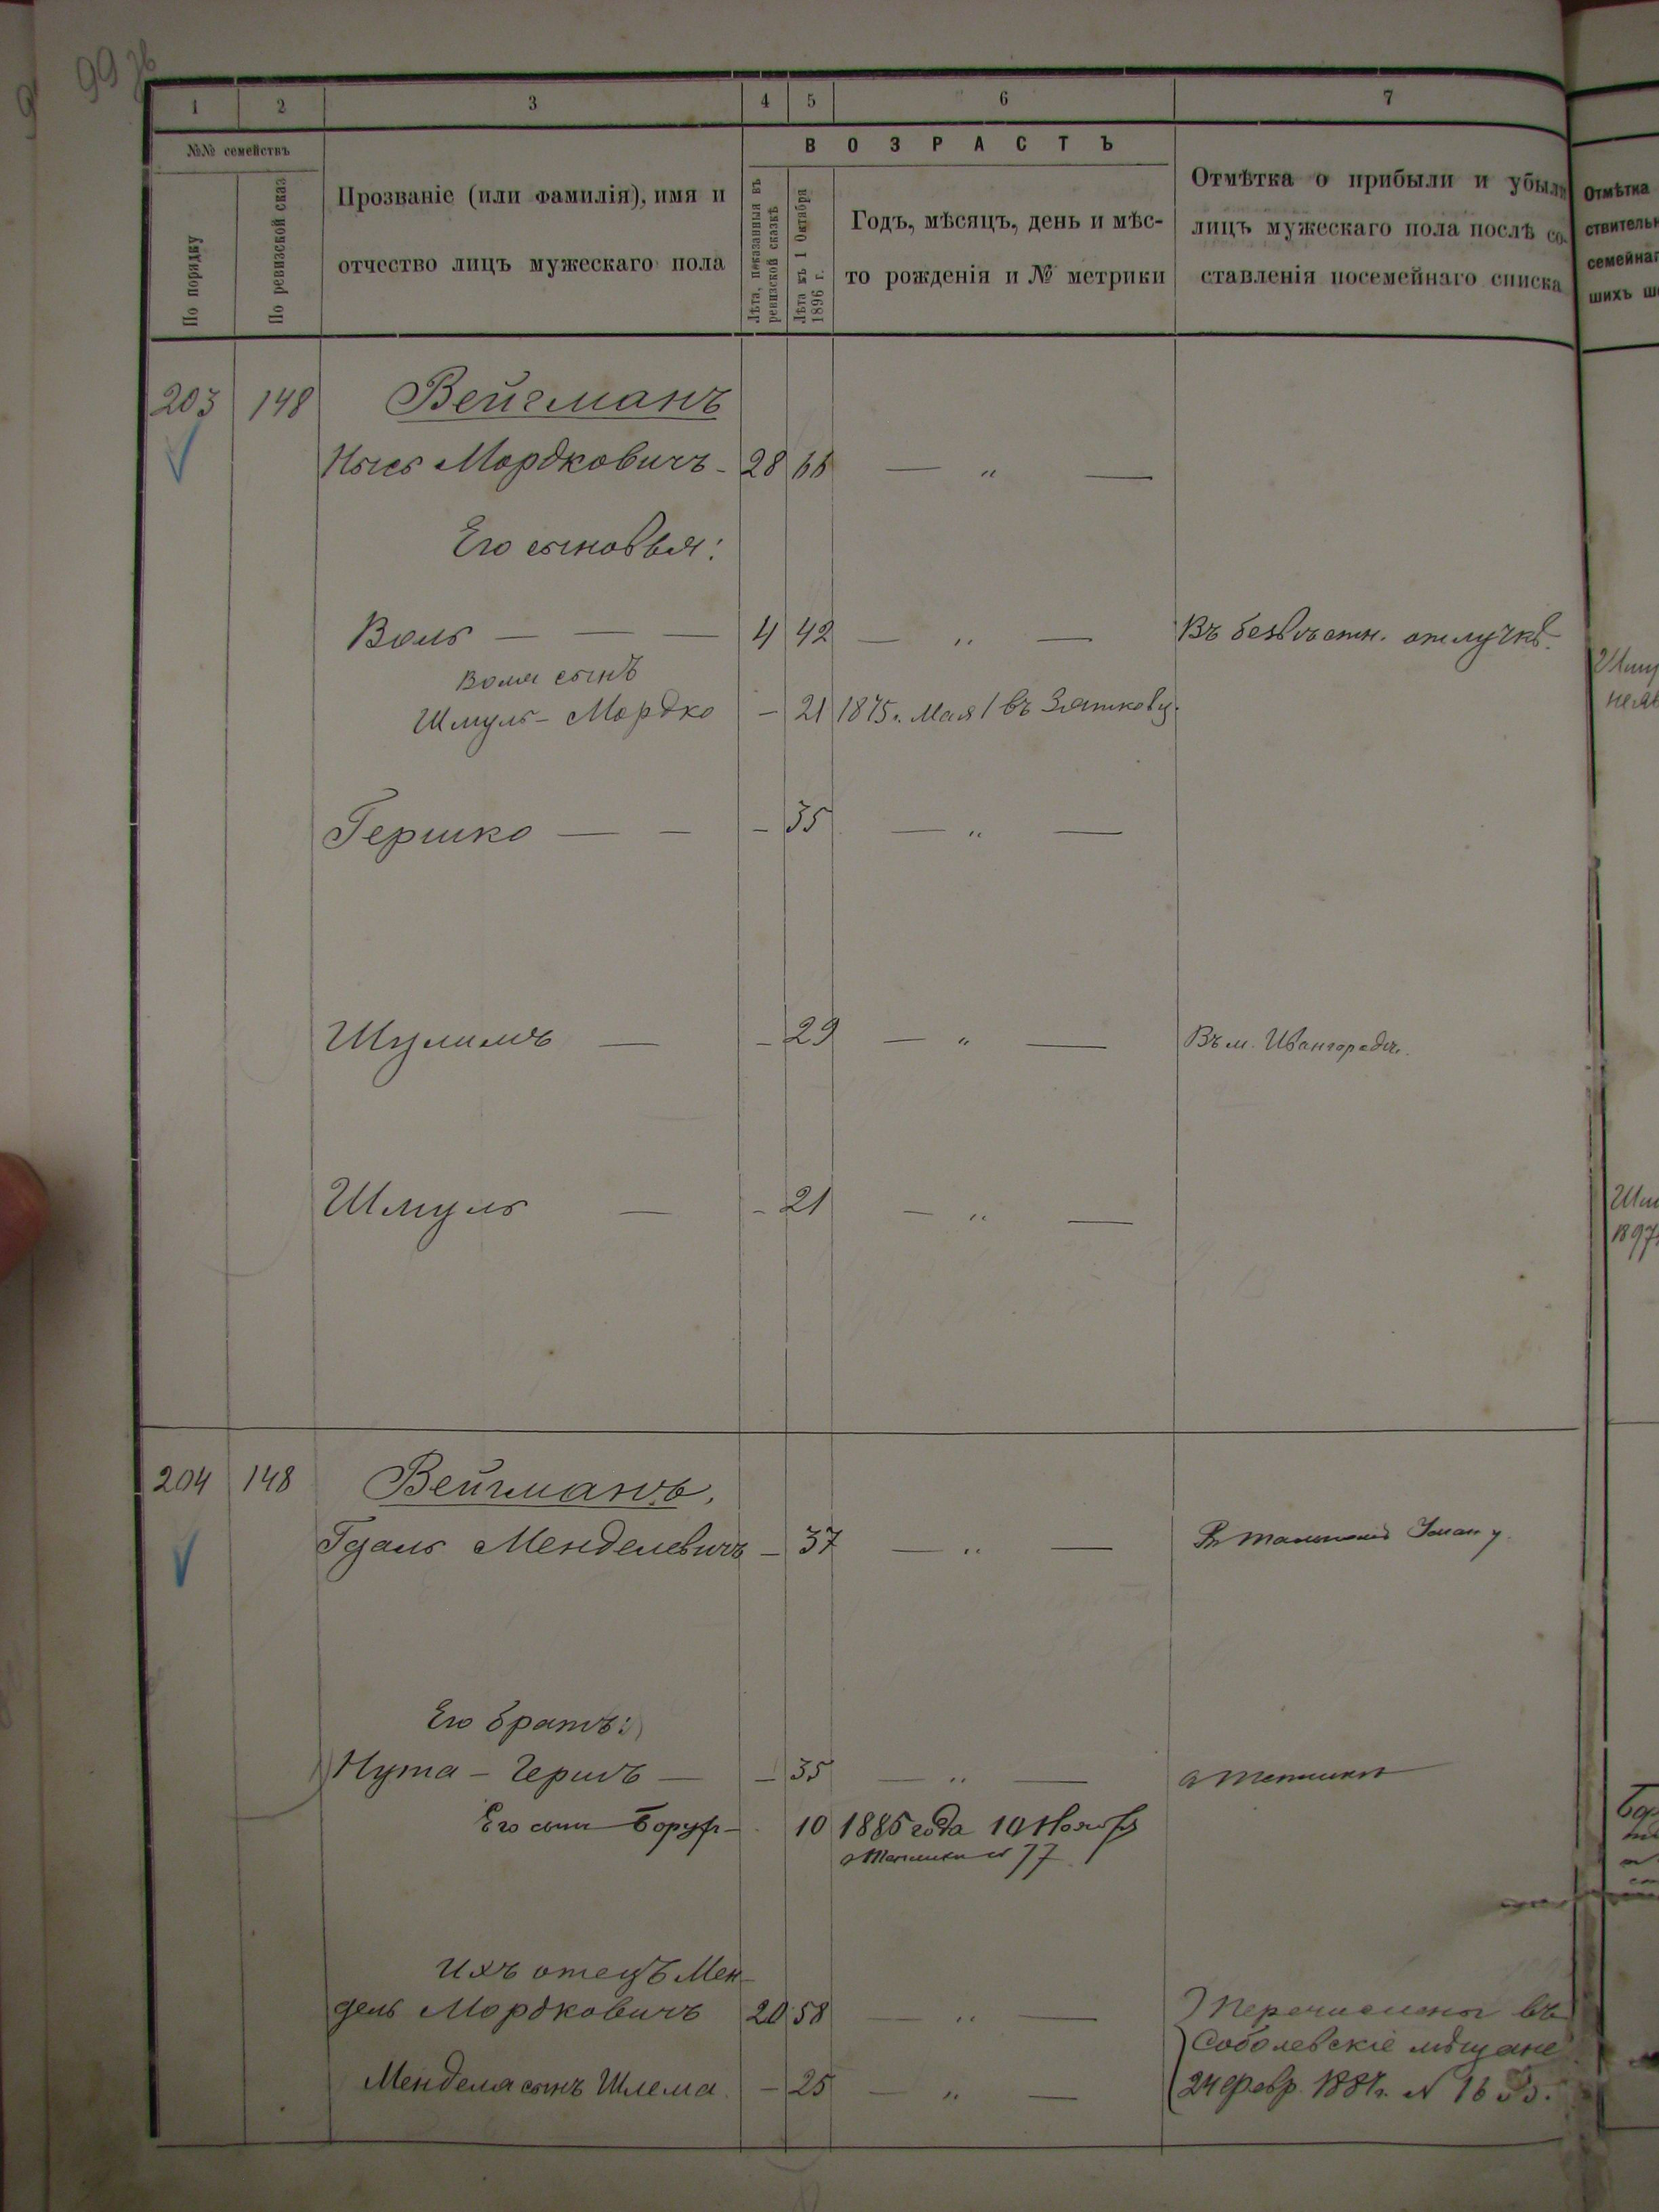 99 зв
1 2 3 4 5 6 7
№№ семействъ
По порядку
По ревизской сказ
Прозваніе (или фамилія), имя и
отчество лицъ мужескаго пола
ВОЗРАСТЪ
Лѣта, показанныя въ
ревизской сказкѣ
Лѣта къ 1 Октября
1896 г.
Годъ, мѣсяцъ, день и мѣс-
то рожденія и № метрики
Отмѣтка о прибыли и убыли
лицъ мужескаго пола послѣ со-
ставленія посемейнаго списка
Отмѣтка
ствительн
семейнаг
шихъ
203 148 Вейгманъ
Мордковичъ - 28 66 — „ —
Его сыновья:
Воль — — — 4 42 — „ — Въ безвѣстн. отлучкѣ.
Воля сынъ
Шмуль-Мордко - 21 1875 г. Мая 1 въ
Гершко — — - 35 — „ —
Шулимъ — - 29 — „ — Въ м. Ивангородѣ.
Шмуль — - 21 — „ —
1897
204 148 Вейгманъ.
Гдаль Менделевичъ - 37 — „ —
Его братъ:
Нута-Гершъ — - 35 — „ —
Его сынъ Борух - 10 1885 года 10 Ноября
77
Ихъ отецъ Мен-
дель Мордковичъ 20 58 — „ — Перечислены въ
Соболевскіе мѣщане
Менделя сынъ Шлема - 25 — „ — 24 Февр. 1887 г. №